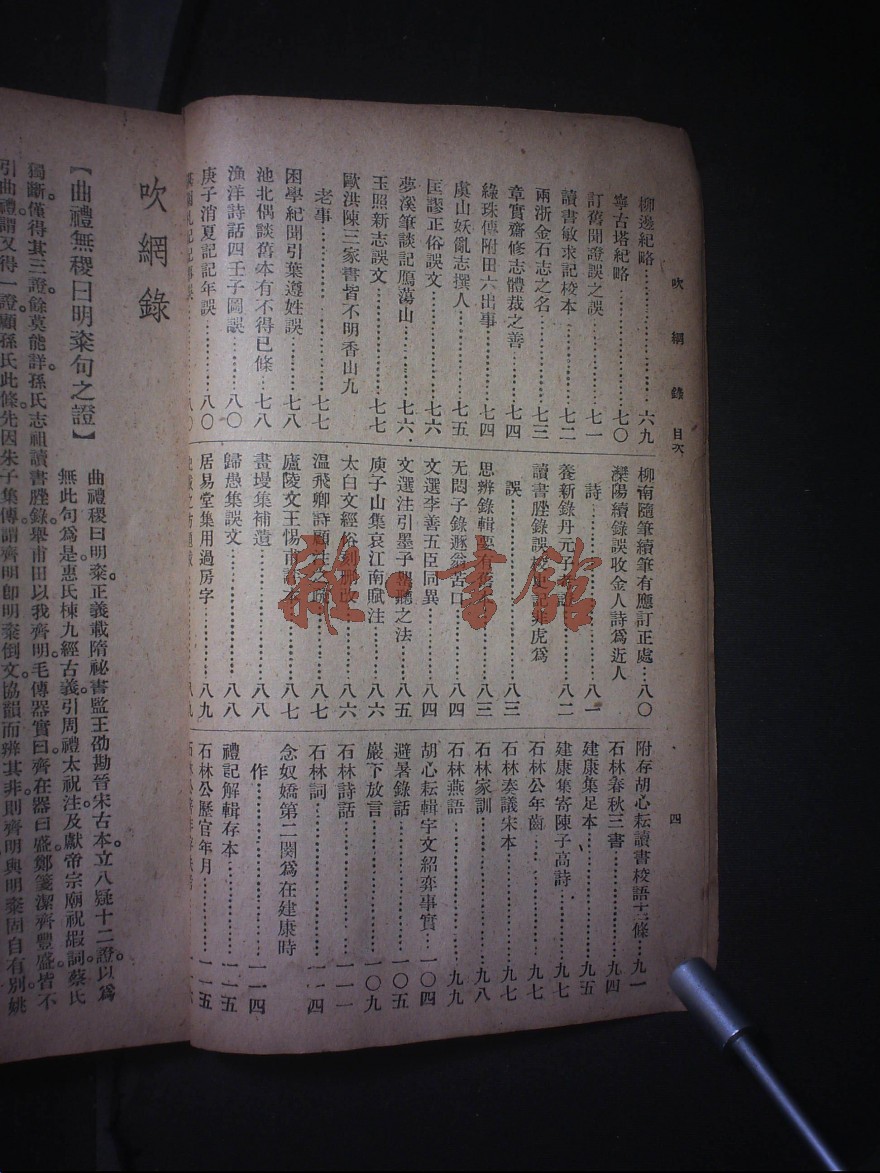 吹網錄 目次
四
柳邊紀略……六九
寧古塔紀略……七〇
訂舊聞證誤之誤……七一
讀書敏求記校本……七二
兩浙金石志之名……七三
章實齋修志體裁之善……七四
綠珠傳附田六出事……七四
虞山妖亂志撰人……七五
匡謬正俗誤文……七六
夢溪筆談記鴈蕩山……七六
玉照新志誤文……七七
歐洪陳三家書皆不明香山九
老事……七七
困學紀聞引葉遵姓誤……七八
池北偶談舊本有不得已條……七八
漁洋詩話四壬子圖誤……八〇
庚子消夏記記年誤……八〇
柳南隨筆續筆有應訂正處…八〇
灤陽續錄誤收金人詩爲近人
詩……八一
養新錄丹元子
八二
讀書脞錄誤
虎爲
誤……八三
思辨錄輯要有
八三
无悶子錄遯翁苦口……八四
文選李善五臣同異……八四
文選注引墨子
聽之法……八五
庾子山集哀江南賦注……八六
太白文經俗
刪改……八六
温飛卿詩顧注之
八七
廬陵文王惕甫
八七
畫墁集補遺……八八
歸愚集誤文……八八
居易堂集用過房字……八九
附存胡心耘讀書校語十二條…九一
石林春秋三書……九四
建康集足本……九五
建康集寄陳子高詩……九七
石林公年齒……九七
石林奏議宋本……九七
石林家訓……九八
石林燕語……九九
胡心耘輯宇文紹弈事實…一〇四
避暑錄話……一〇五
巖下放言……一〇九
石林詩話……一一一
石林詞……一一四
念奴嬌第二闋爲在建康時
作……一一四
禮記解輯存本……一一五
石林公歷官年月……一一五
吹網錄
【曲禮無稷曰明粢句之證】
曲禮稷曰明粢正義載隋祕書監王劭勘晉宋古本立八疑十二證。以爲
無此句爲是。惠氏棟九經古義引周禮太祝注及獻帝宗廟祝嘏詞蔡氏
獨斷僅得其三證。餘莫能詳。孫氏志祖讀書脞錄舉甫田以我齊明。毛傳器實曰齊在器曰盛。鄭箋潔齊豐盛。皆不
引曲禮謂又得一證。顧孫氏此條先因朱子集傳謂齊明卽明粢倒文協韻而辨其非。則齊明與明粢固自有別姚
雜·書館